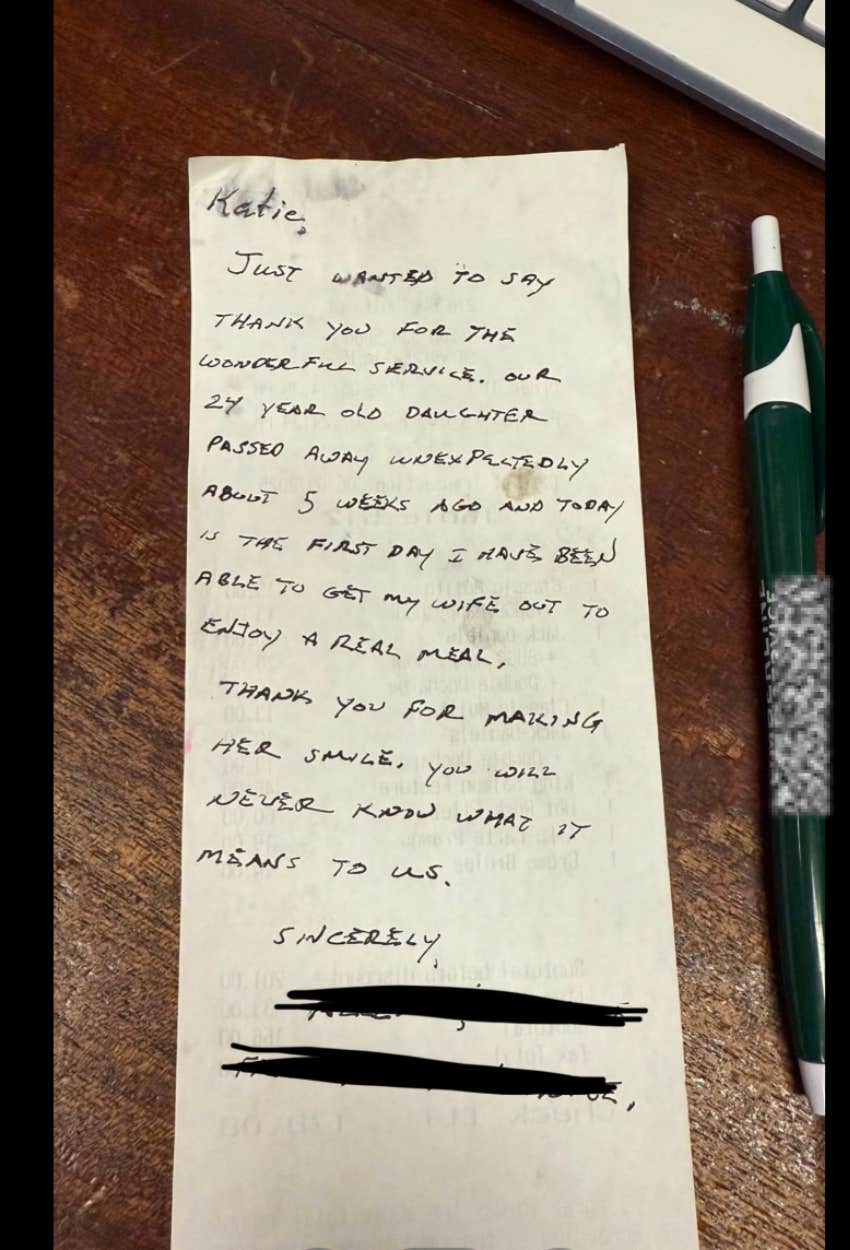 Katie,
JUST WANTED TO SAY
THANK YOU FOR THE
WONDERFUL SERVICE. OUR
24 YEAR OLD DAUGHTER
PASSED AWAY UNEXPECTEDLY
ABOUT 5 WEEKS AGO AND TODAY
IS THE FIRST DAY I HAVE BEEN
ABLE TO GET MY WIFE OUT TO
ENJOY A REAL MEAL,
THANK YOU FOR MAKING
HER SMILE. YOU WILL
NEVER KNOW WHAT IT
MEANS TO US.
SINCERELY,